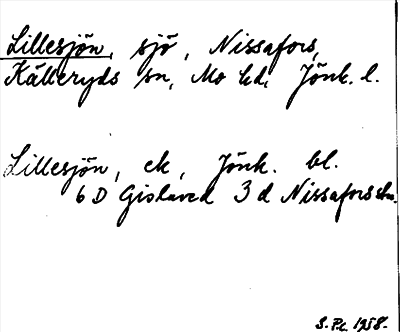 Lillesjön, sjö, Nissafors,
Källeryds sn, Mo hd, Jönk. l.
Lillesjön, ek, Jönk. bl.
6 D Gislaved 3 d Nissafors
S. Pe. 1958.